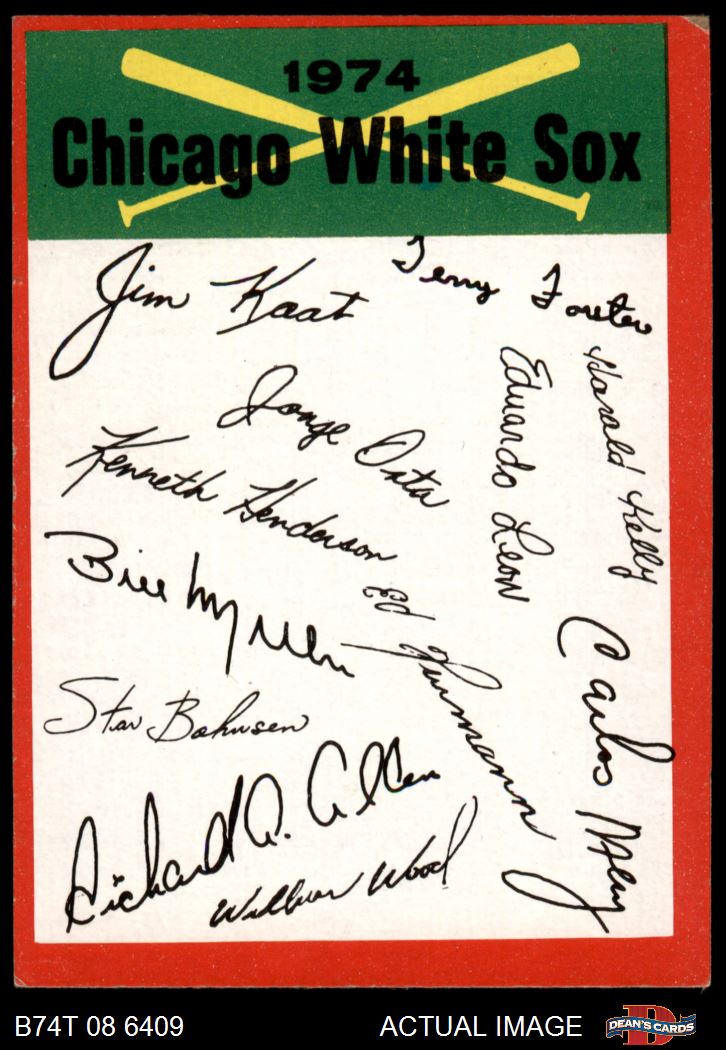 1974
Chicago White Sox
Jim Kaat
Terry Forster
Jorge Orta
Eduardo Leon
Harold Kelly
Kenneth Henderson
Bill Melton
Ed Herrmann
Carlos May
Stan Bahnsen
Richard A. Allen
Wilbur Wood
B74T 08 6409
ACTUAL IMAGE
D
DEAN'S CARDS